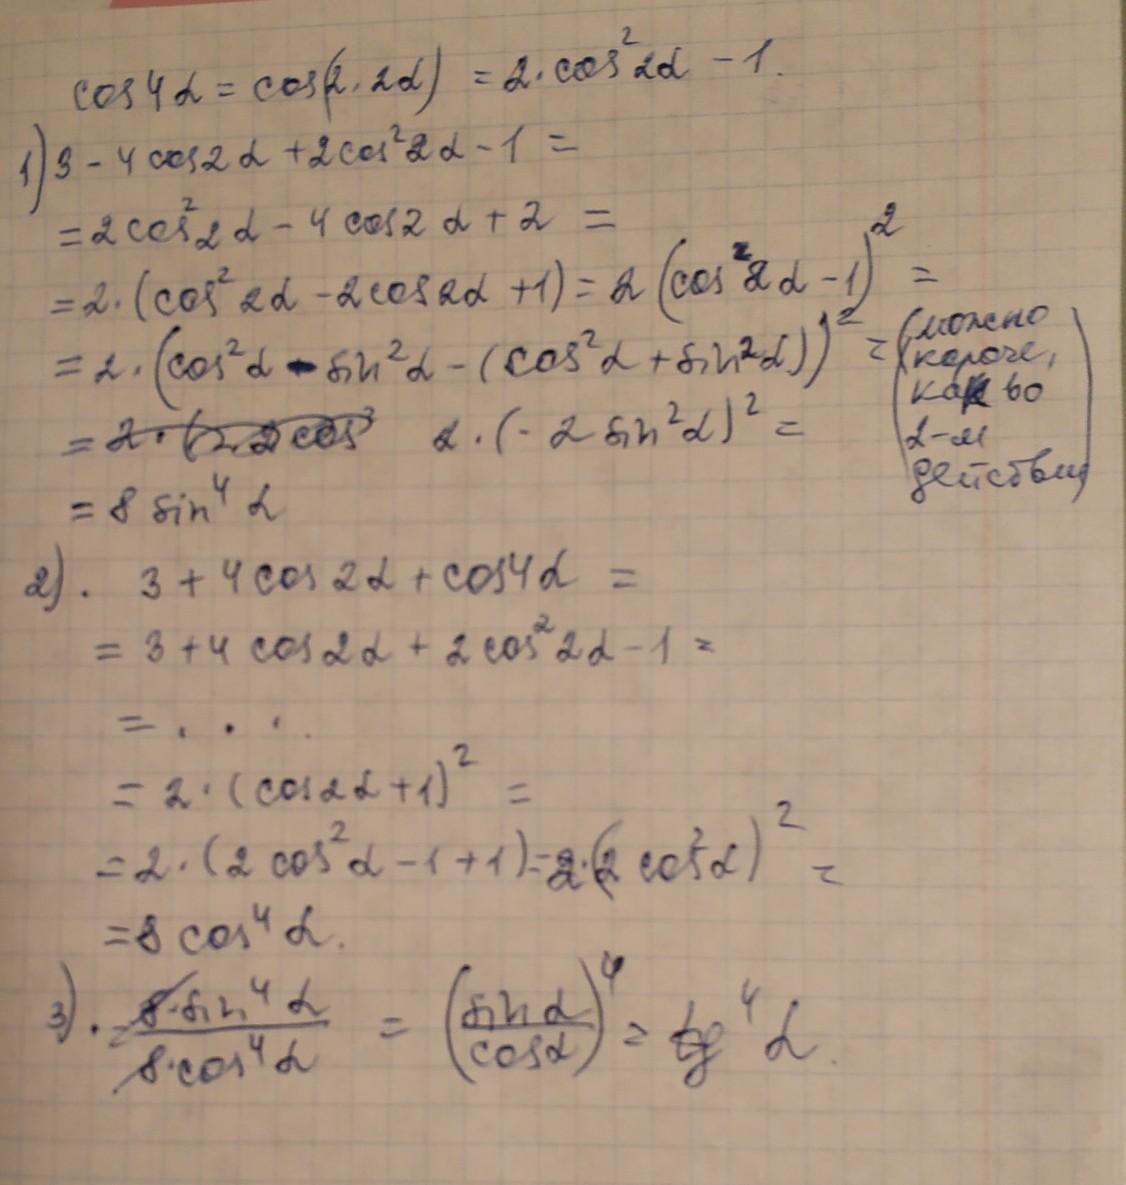 cos4α = cos(2·2α) = 2·cos²2α − 1.
1) 3 − 4cos2α + 2cos²2α − 1 =
= 2cos²2α − 4cos2α + 2 =
= 2·(cos²2α − 2cos2α + 1) = 2(cos²2α − 1)² =
= 2·(cos²α − sin²α − (cos²α + sin²α))² = (можно
короче,
как во
2-м
действии)
= 2·(−2sin²α)² =
= 8 sin⁴α
2). 3 + 4cos2α + cos4α =
= 3 + 4cos2α + 2cos²2α − 1 =
= . . .
= 2·(cos2α + 1)² =
= 2·(2cos²α − 1 + 1) = 2·(2cos²α)² =
= 8 cos⁴α.
3). = 8·sin⁴α / 8·cos⁴α = (sinα / cosα)⁴ = tg⁴α.